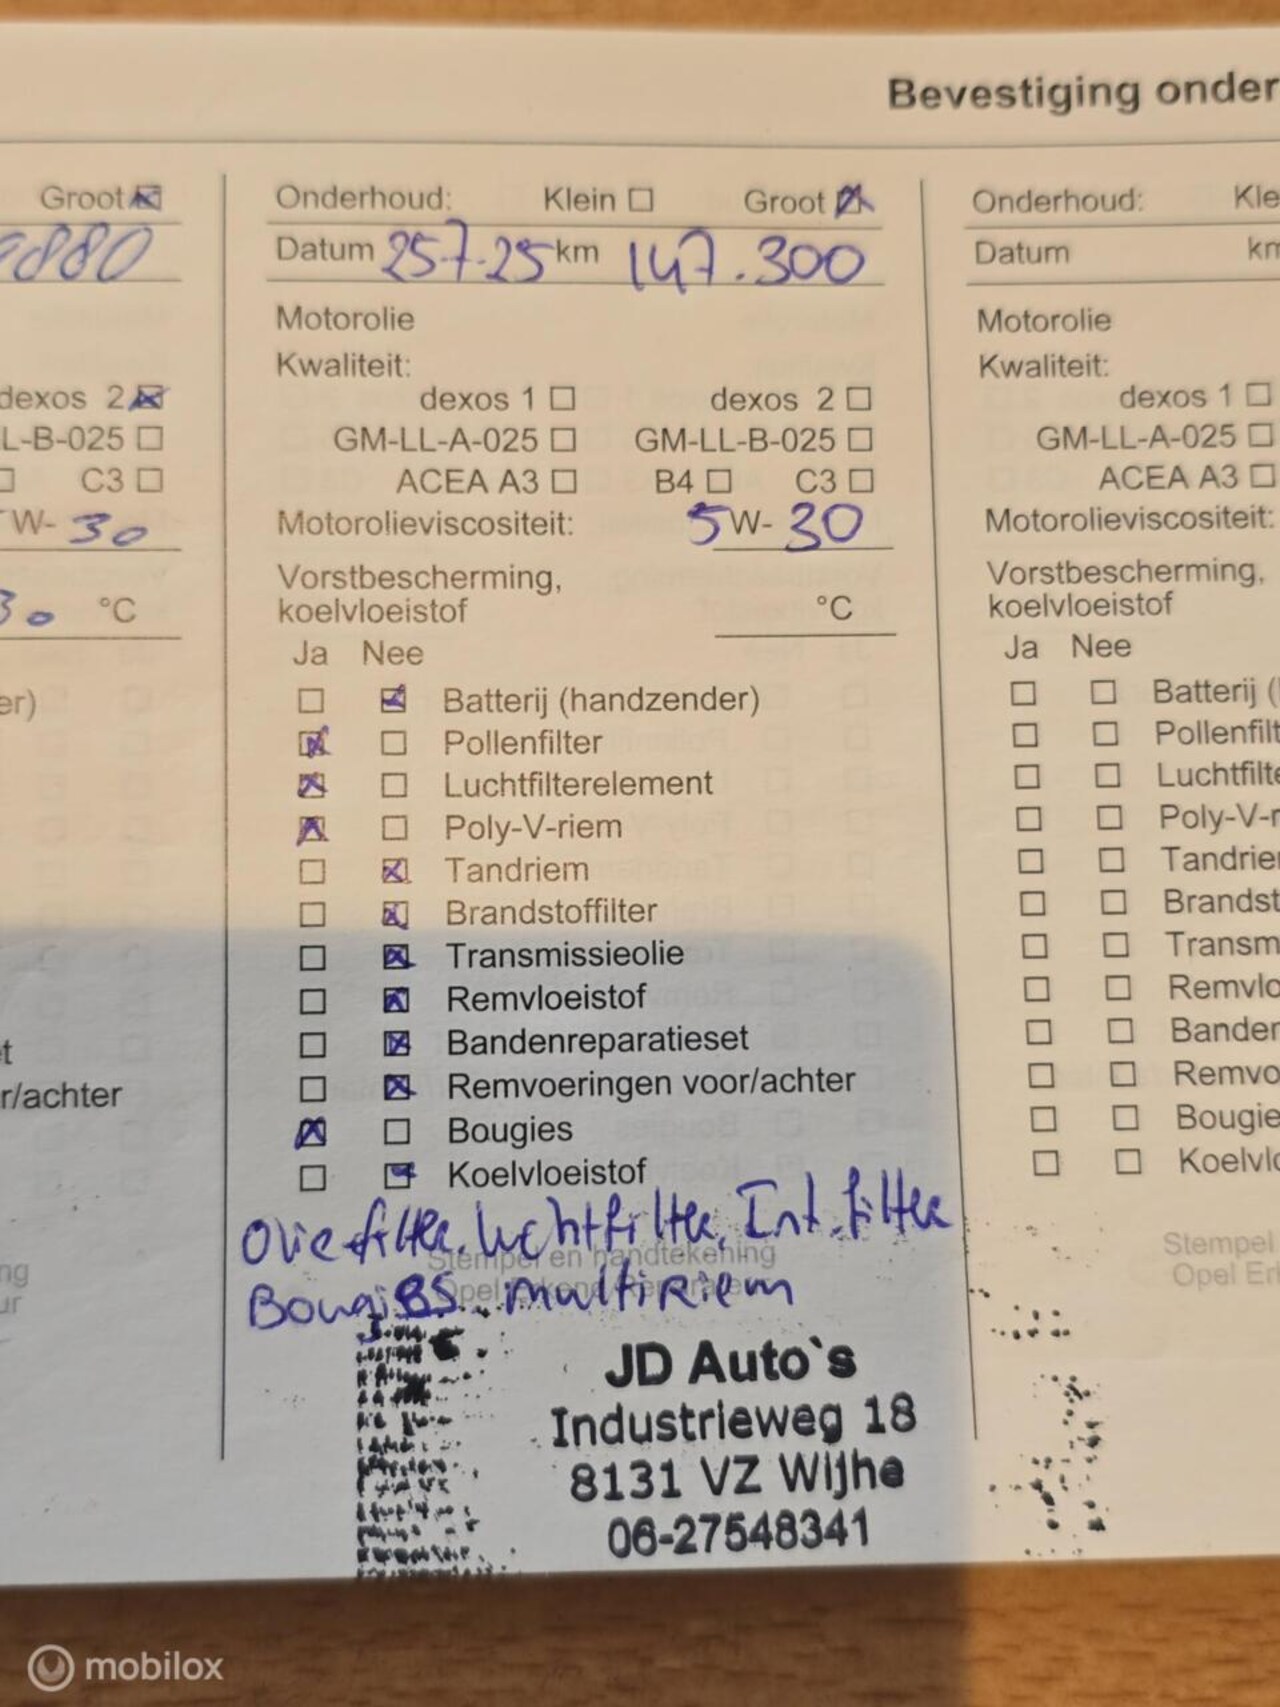 Bevestiging onder
Groot
9880
dexos 2
L-B-025
C3
W-30
30 °C
er)
t
r/achter
ng
ur
Onderhoud: Klein Groot
Datum 257-25 km 147.300
Motorolie
Kwaliteit:
dexos 1 dexos 2
GM-LL-A-025 GM-LL-B-025
ACEA A3 B4 C3
Motorolieviscositeit: 5W-30
Vorstbescherming,
koelvloeistof °C
Ja Nee
Batterij (handzender)
Pollenfilter
Luchtfilterelement
Poly-V-riem
Tandriem
Brandstoffilter
Transmissieolie
Remvloeistof
Bandenreparatieset
Remvoeringen voor/achter
Bougies
Koelvloeistof
Oliefilter, luchtfilter, Int.filter
Stempel en handtekening
Bougies multiriem
JD Auto`s
Industrieweg 18
8131 VZ Wijhe
06-27548341
Onderhoud: Kle
Datum km
Motorolie
Kwaliteit:
dexos 1
GM-LL-A-025
ACEA A3
Motorolieviscositeit:
Vorstbescherming,
koelvloeistof
Ja Nee
Batterij (
Pollenfilt
Luchtfilte
Poly-V-r
Tandrie
Brandst
Transm
Remvlo
Banden
Remvo
Bougie
Koelvlo
Stempel
Opel Erk
mobilox